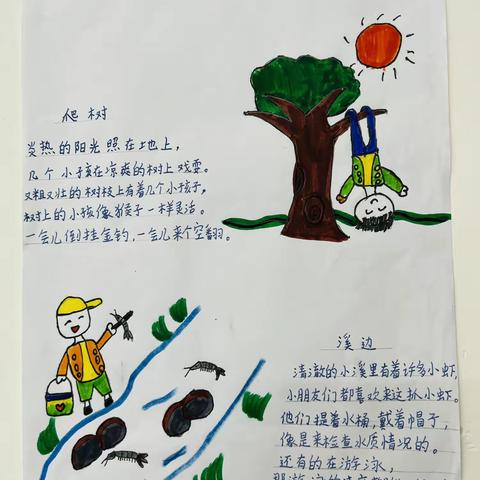 爬树
炎热的阳光照在地上，
几个小孩在凉爽的树上戏耍。
又粗又壮的树枝上有着几个小孩子，
树上的小孩像猴子一样灵活。
一会儿倒挂金钩，一会儿来个空翻。
溪边
清澈的小溪里有着许多小虾，
小朋友们都喜欢来这抓小虾。
他们提着水桶，戴着帽子，
像是来检查水质情况的。
还有的在游泳，